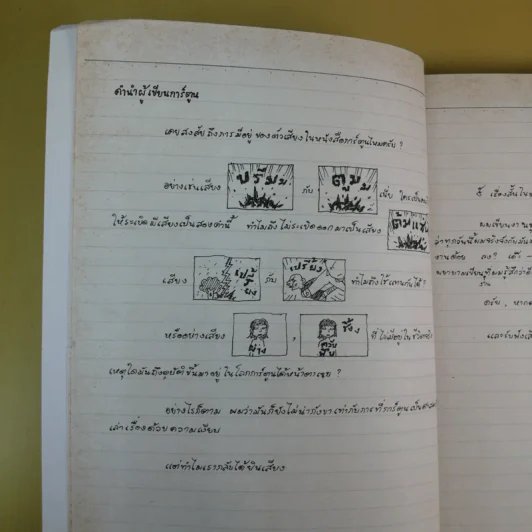 คำนำผู้เขียนการ์ตูน
เคยสงสัยถึงการมีอยู่ของตัวเสียงในหนังสือการ์ตูนไหมครับ ?
อย่างเช่นเสียง บรึมม กับ ตูมม เนี่ย ใครเป็นคน
ให้ระเบิดมีเสียงเป็นสองคำนี้ ทำไมถึงไม่ระเบิดออกมาเป็นเสียง
เสียง เปรี้ยง กับ เปรี้ยง ทำไมถึงใช้แทนกันได้ ?
หรืออย่างเสียง ผ่าง , ที่ไม่มีอยู่ในชีวิตจริง
เหตุใดมันถึงอุบัติขึ้นมาอยู่ในโลกการ์ตูนได้หน้าตาเฉย ?
อย่างไรก็ตาม ผมว่ามันก็ยังไม่น่ากังขาเท่ากับการที่การ์ตูนเป็น
เล่าเรื่องด้วยความเงียบ
แต่ทำไมเรากลับได้ยินเสียง
ผมเขียนงาน
งานด้อย
พยายามเขียนที่ผมรู้สึกว่า
ครับ , หาก